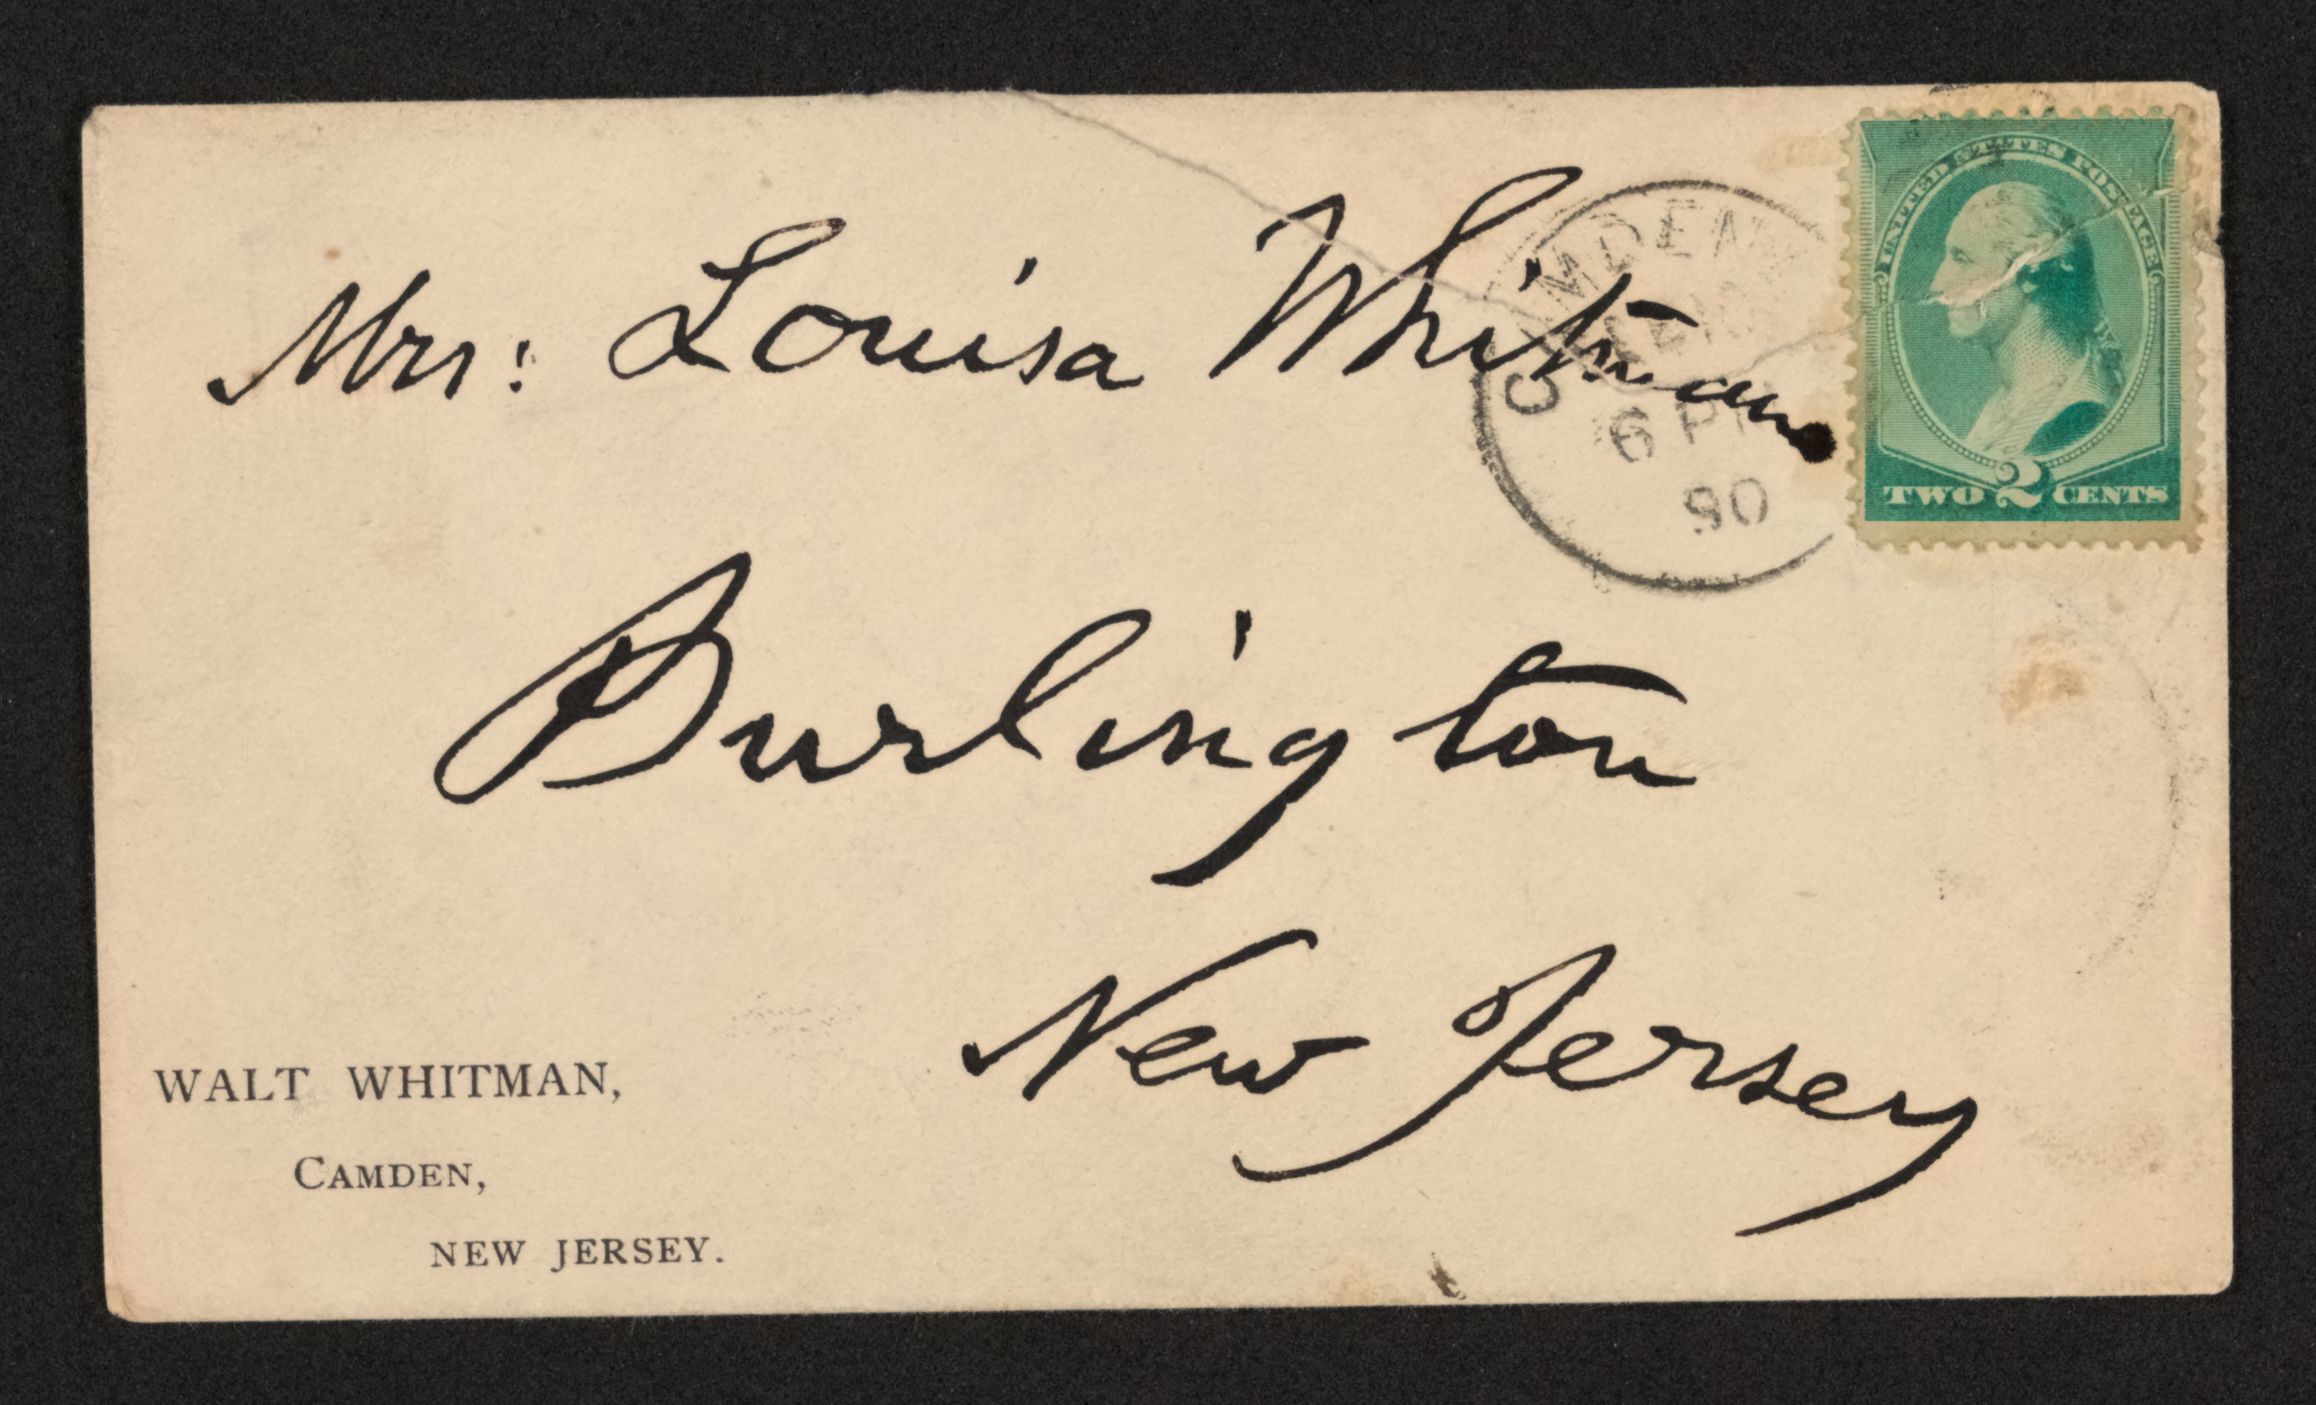 Mrs: Louisa Whitman
Burlington
New Jersey
WALT WHITMAN,
CAMDEN,
NEW JERSEY.
CAMDEN
6 PM
90
UNITED STATES POSTAGE
TWO 2 CENTS